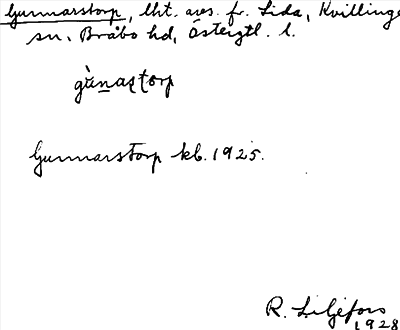 Gunnarstorp, lht. avs. fr. Lida, Kvillinge
sn. Bråbo hd, Östergtl. l.
gùnaʂʈorp
Gunnarstorp kb. 1925.
R. Liljefors
1928